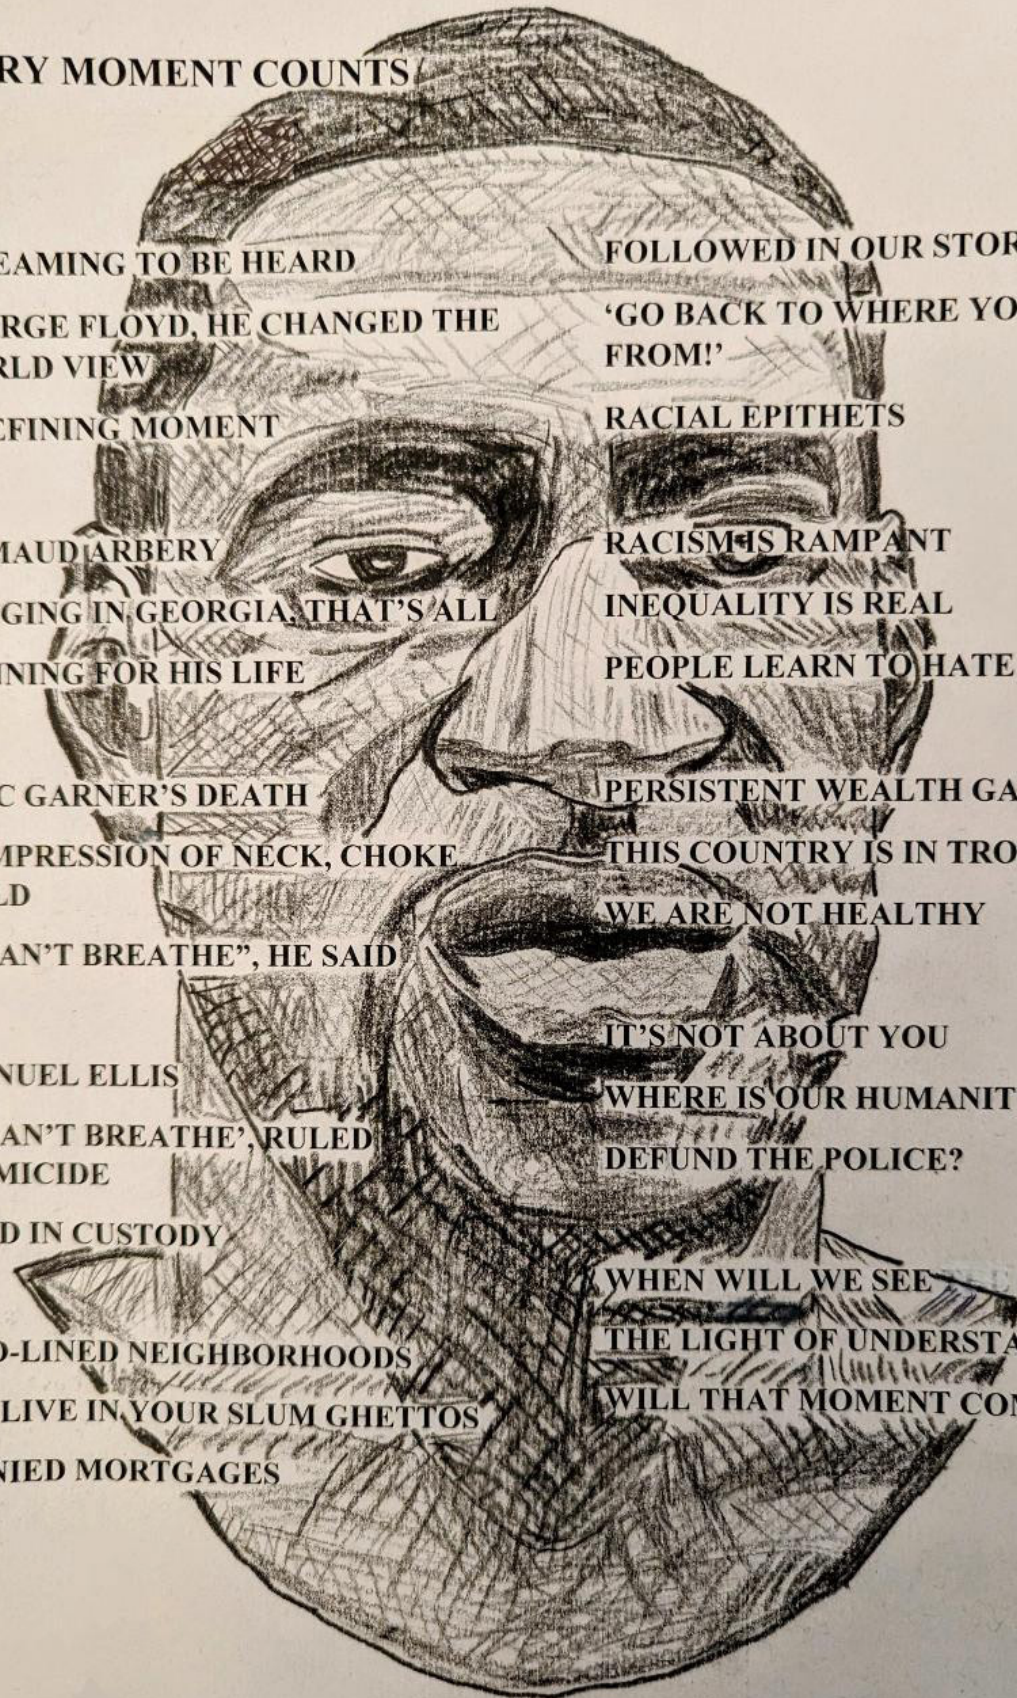 RY MOMENT COUNTS
EAMING TO BE HEARD
RGE FLOYD, HE CHANGED THE
RLD VIEW
EFINING MOMENT
MAUD ARBERY
GING IN GEORGIA, THAT'S ALL
NING FOR HIS LIFE
C GARNER'S DEATH
MPRESSION OF NECK, CHOKE
LD
AN'T BREATHE”, HE SAID
NUEL ELLIS
AN'T BREATHE’, RULED
MICIDE
D IN CUSTODY
D-LINED NEIGHBORHOODS
LIVE IN YOUR SLUM GHETTOS
NIED MORTGAGES
FOLLOWED IN OUR STOR
‘GO BACK TO WHERE YO
FROM!’
RACIAL EPITHETS
RACISM IS RAMPANT
INEQUALITY IS REAL
PEOPLE LEARN TO HATE
PERSISTENT WEALTH GA
THIS COUNTRY IS IN TRO
WE ARE NOT HEALTHY
IT'S NOT ABOUT YOU
WHERE IS OUR HUMANIT
DEFUND THE POLICE?
WHEN WILL WE SEE
THE LIGHT OF UNDERSTA
WILL THAT MOMENT COM